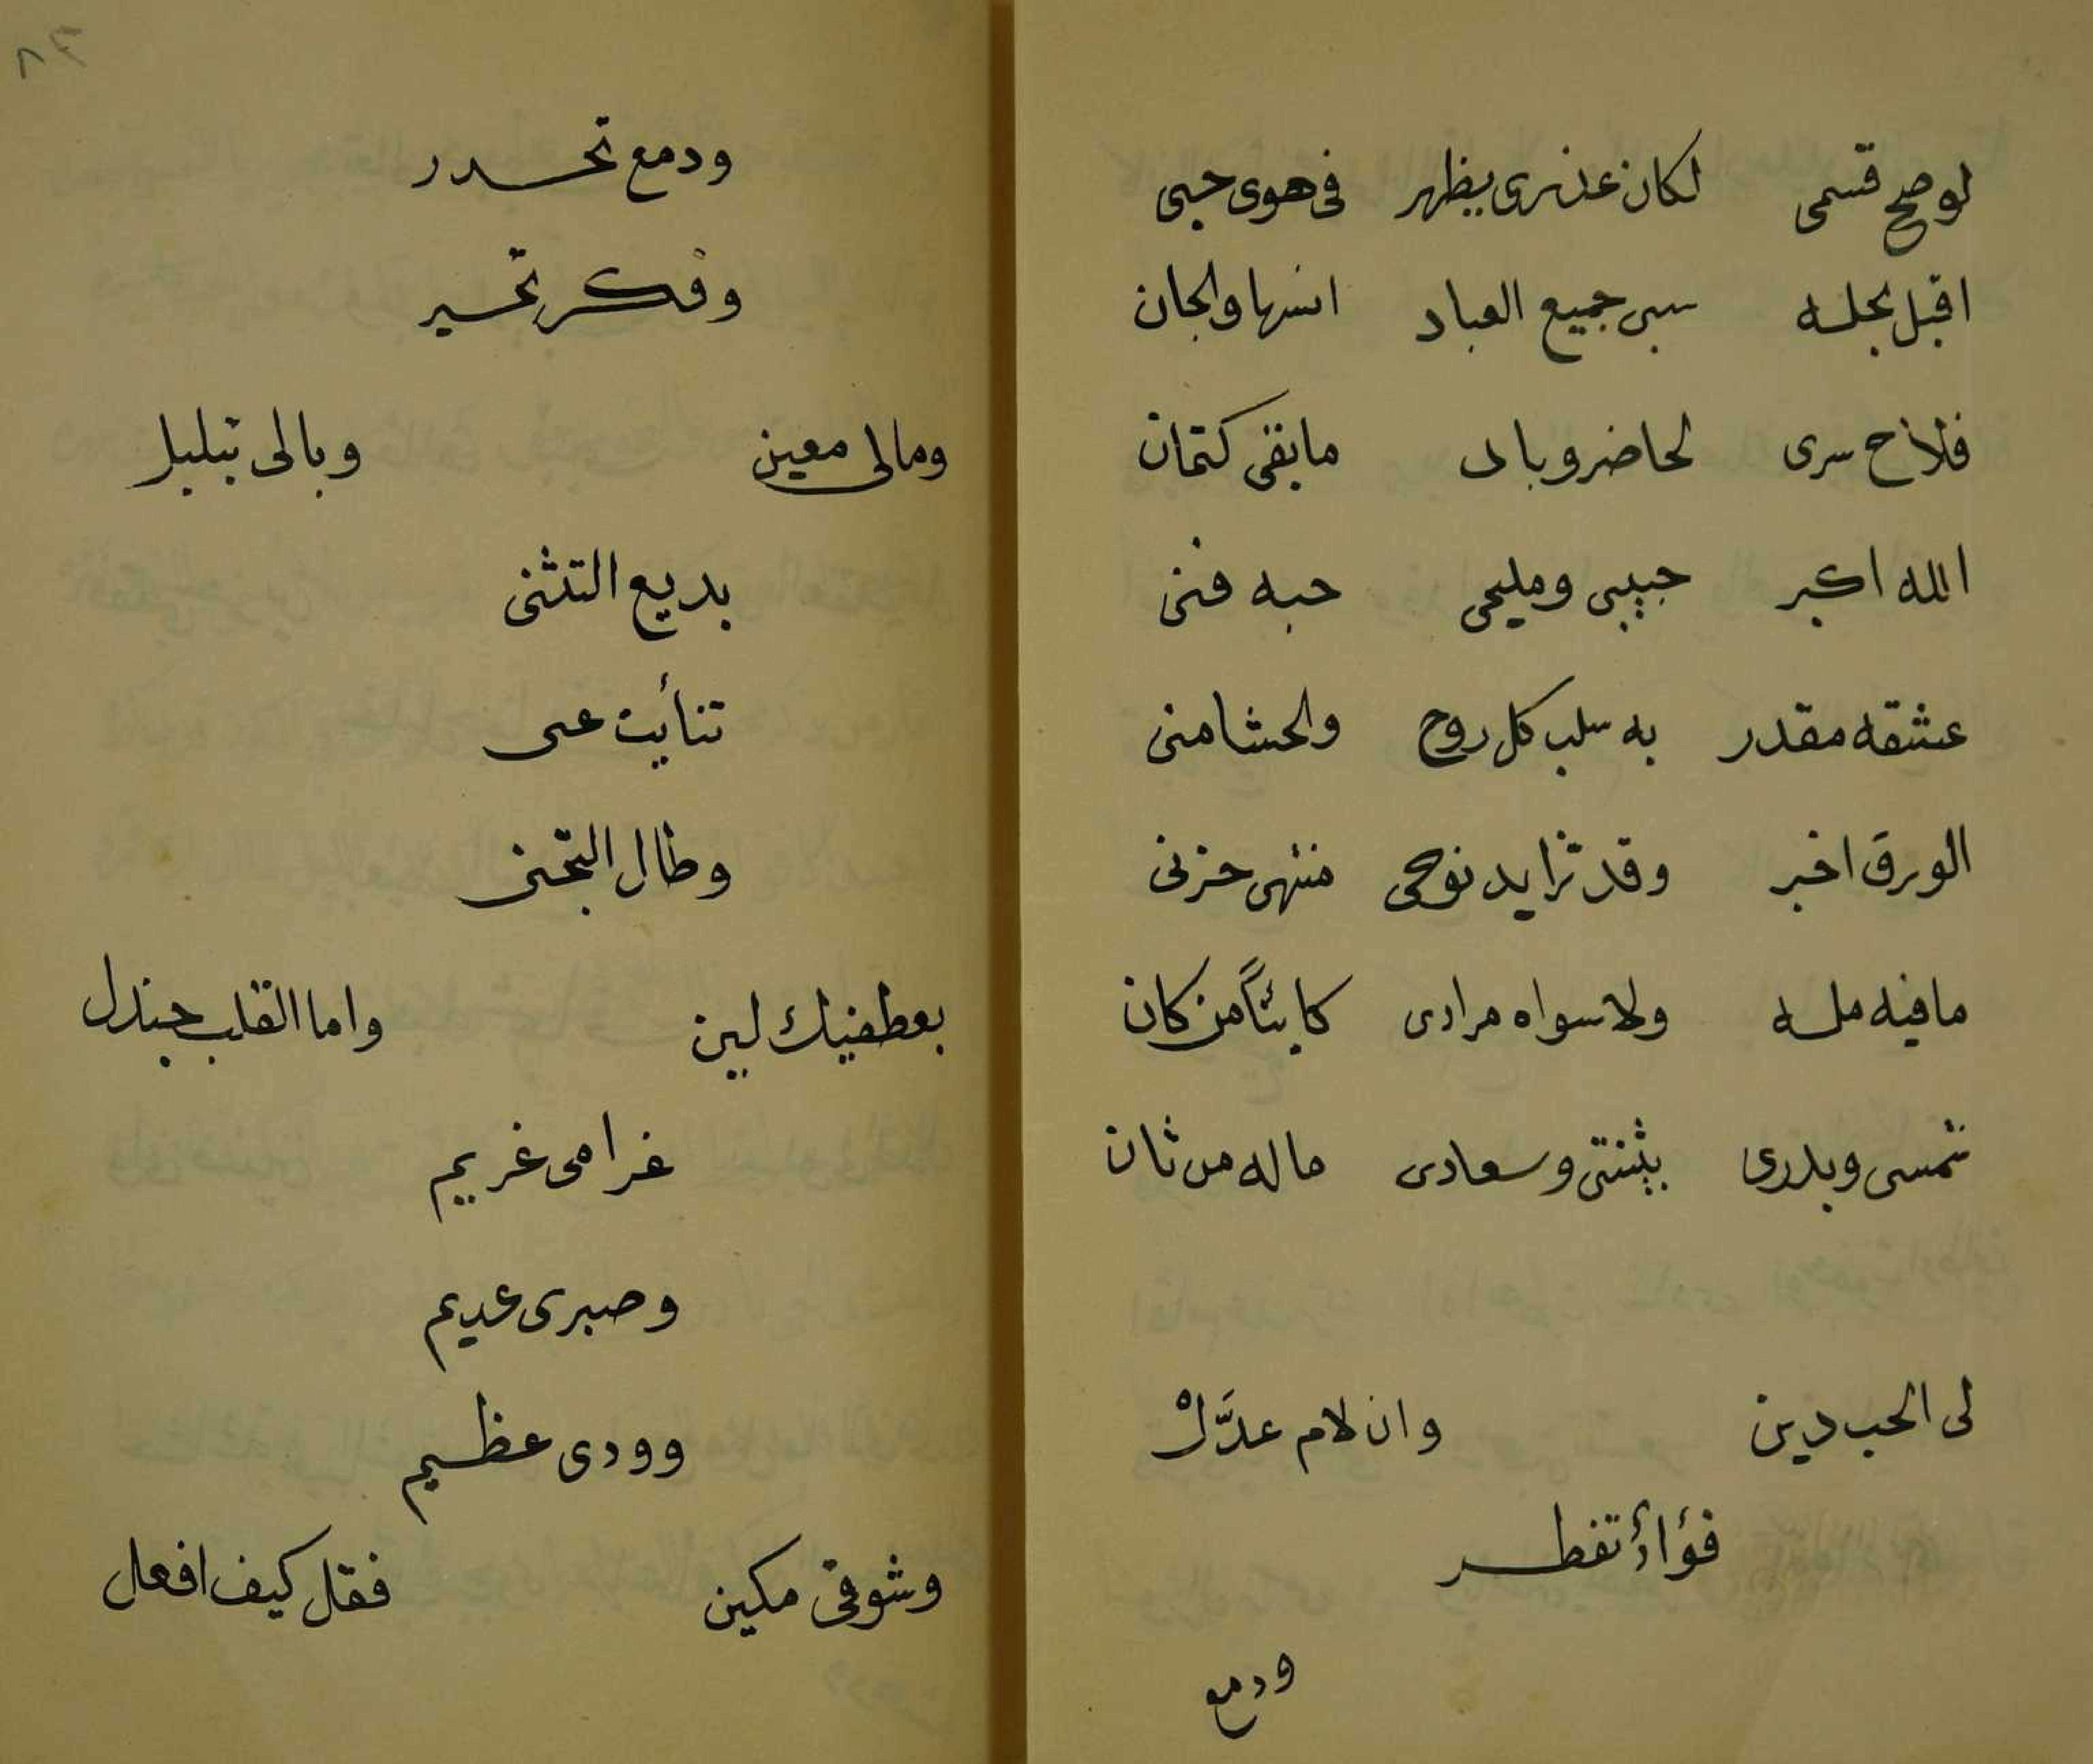 لوصح قسمى لكان عذرى يظهر فى هوى حبى
اقبل بحله سبى جميع العباد انسها والجان
فلاح سرى لحاضر وباد مابقى كتمان
الله اكبر حبيبى ومليحى حبه فنى
عشقه مقدر به سلب كل روح والحشا منى
الورق اخبر وقد تزايد نوحى منتهى حزنى
مافيه مله ولا سواه مرادى كايناً من كان
شمسى وبدرى بثينتى وسعادى ماله من ثان
لى الحب دين وان لام عذّلْ
فؤادٌ تفطر
ودمع
٦٨
ودمع تحدر
وفكر تحير
ومالى معين وبالى تبلبل
بديع التثنى
تنأيت عنى
وطال التجنى
بعطفيك لين واما القلب جندل
غرامى غريم
وصبرى عديم
وودى عظيم
وشوقى مكين فقل كيف افعل